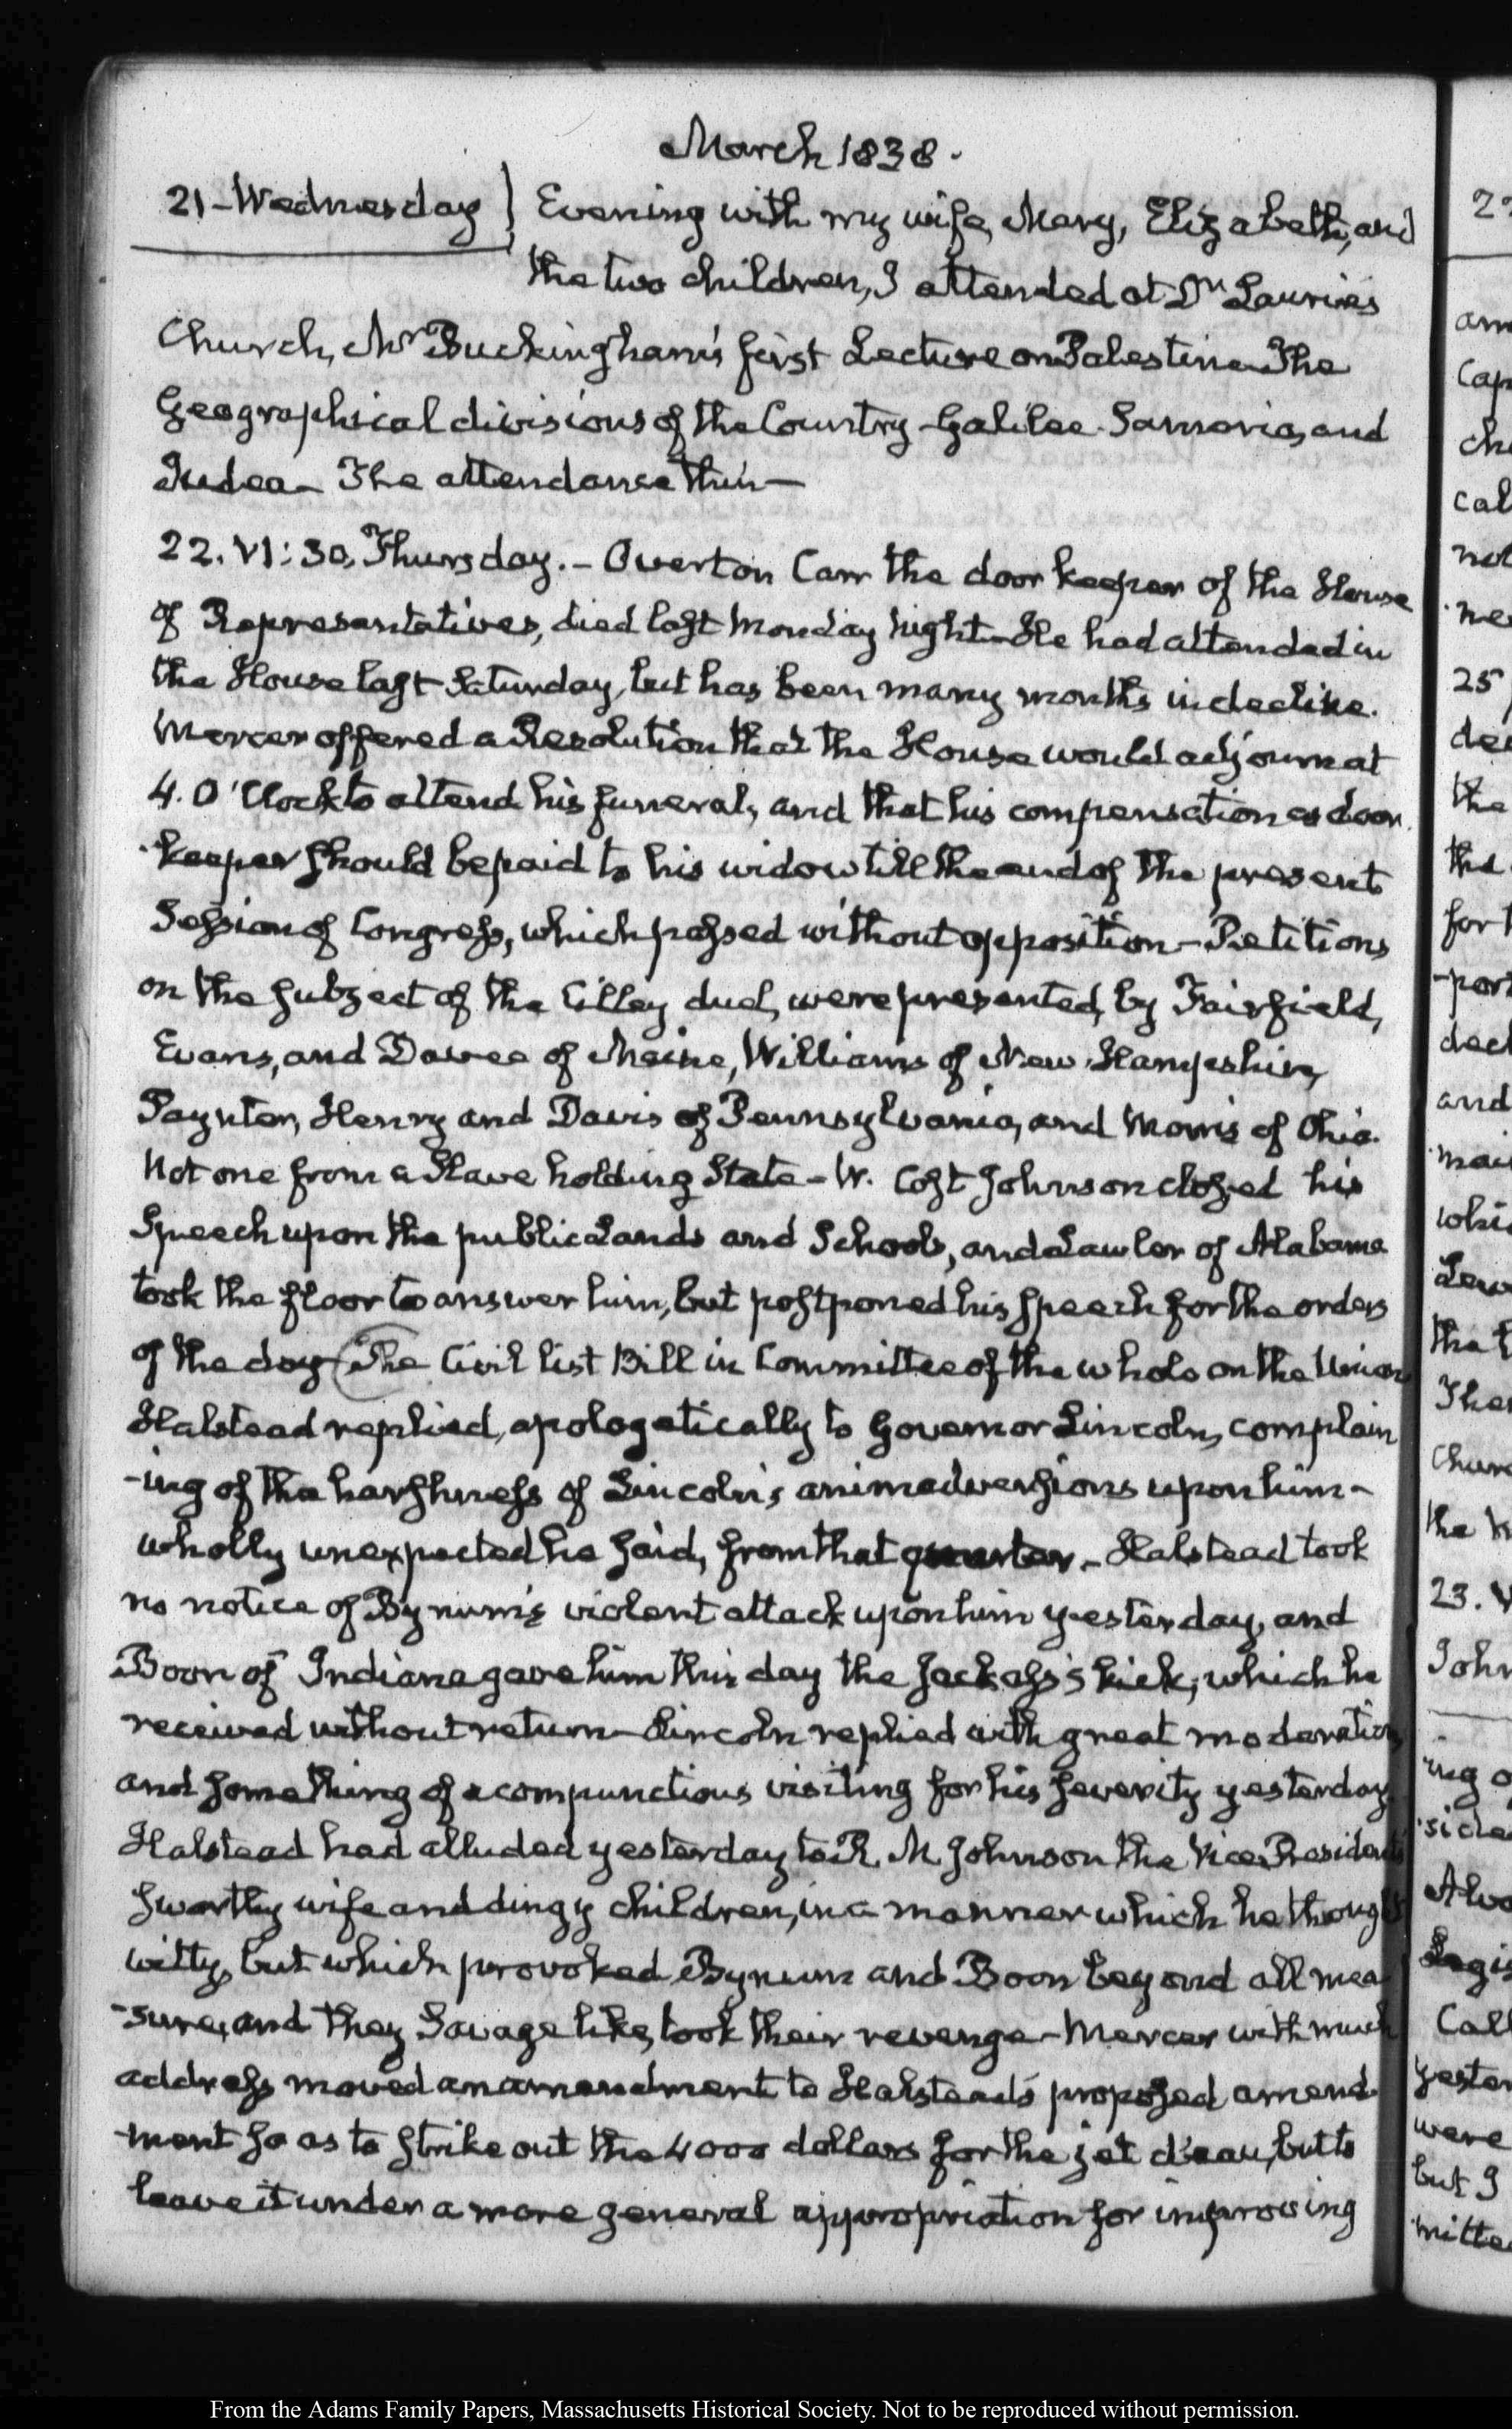 March 1838.
21 - Wednesday } Evening with my wife, Mary, Elizabeth, and
the two children, I attended at Dr Laurie's
Church, Mr Buckingham's first Lecture on Palestine. The
Geographical divisions of the Country - Galilee. Samaria, and
Judea - The attendance thin -
22. VI:30. Thursday. - Overton Carr the door keeper of the House
of Representatives, died last Monday night - He had attended in
the House last Saturday, but has been many months in decline.
Mercer offered a Resolution that the House would adjourn at
4. O'Clock to attend his funeral, and that his compensation as door
-keeper should be paid to his widow till the end of the present
Session of Congress, which passed without opposition - Petitions
on the subject of the Cilley duel, were presented, by Fairfield,
Evans, and Davee of Maine, Williams of New Hampshire,
Paynter, Henry and Davis of Pennsylvania, and Morris of Ohio.
Not one from a Slave holding State - W. Cost Johnson closed his
Speech upon the public Lands and Schools, and Lawler of Alabama
took the floor to answer him, but postponed his speech for the orders
of the day (The Civil list Bill in Committee of the whole on the Union
Halstead replied, apologetically to Governor Lincoln, complain
-ing of the harshness of Lincoln's animadversions upon him -
wholly unexpected he said, from that quarter - Halstead took
no notice of Bynum's violent attack upon him yesterday, and
Boon of Indiana gave him this day the jackass's kick, which he
received without return - Lincoln replied with great moderation
and something of a compunctious visiting for his severity yesterday
Halstead had alluded yesterday to R. M. Johnson the Vice President's
swarthy wife and dingy children, in a manner which he thought
witty, but which provoked Bynum and Boon beyond all mea
-sure, and they Savage like, took their revenge - Mercer with much
address moved an amendment to Halstead's proposed amend
-ment so as to strike out the 4000 dollars for the jet d'eau, but to
leave it under a more general appropriation for improving
From the Adams Family Papers, Massachusetts Historical Society. Not to be reproduced without permission.